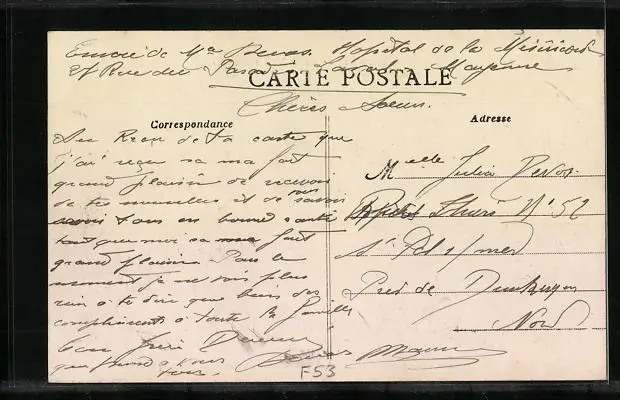 Envoie de Mr Devos. Hopital de la Miséricorde
21 Rue du Laval Mayenne
CARTE POSTALE
Chères Soeur.
Correspondance
Adresse
Au Reçu de ta carte que
j'ai reçu sa ma fait
grand plaisir de recevoir
de tes nouvelles et de vous savoir
tous en bonne santé
tout que moi sa ma fait
grand plaisir Pour le
moment je ne vois plus
rien a te dire que bien des
compliments à toute la famille
Ton frère Devos
que pense a vous
tous.
Melle Julia Devos.
N° 52
St Pol s/mer
Pres de Dunkerque
Nord
F53